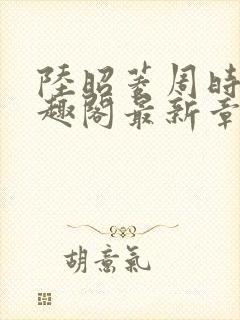 陸昭菱周時
趣閣最新章
胡意氣